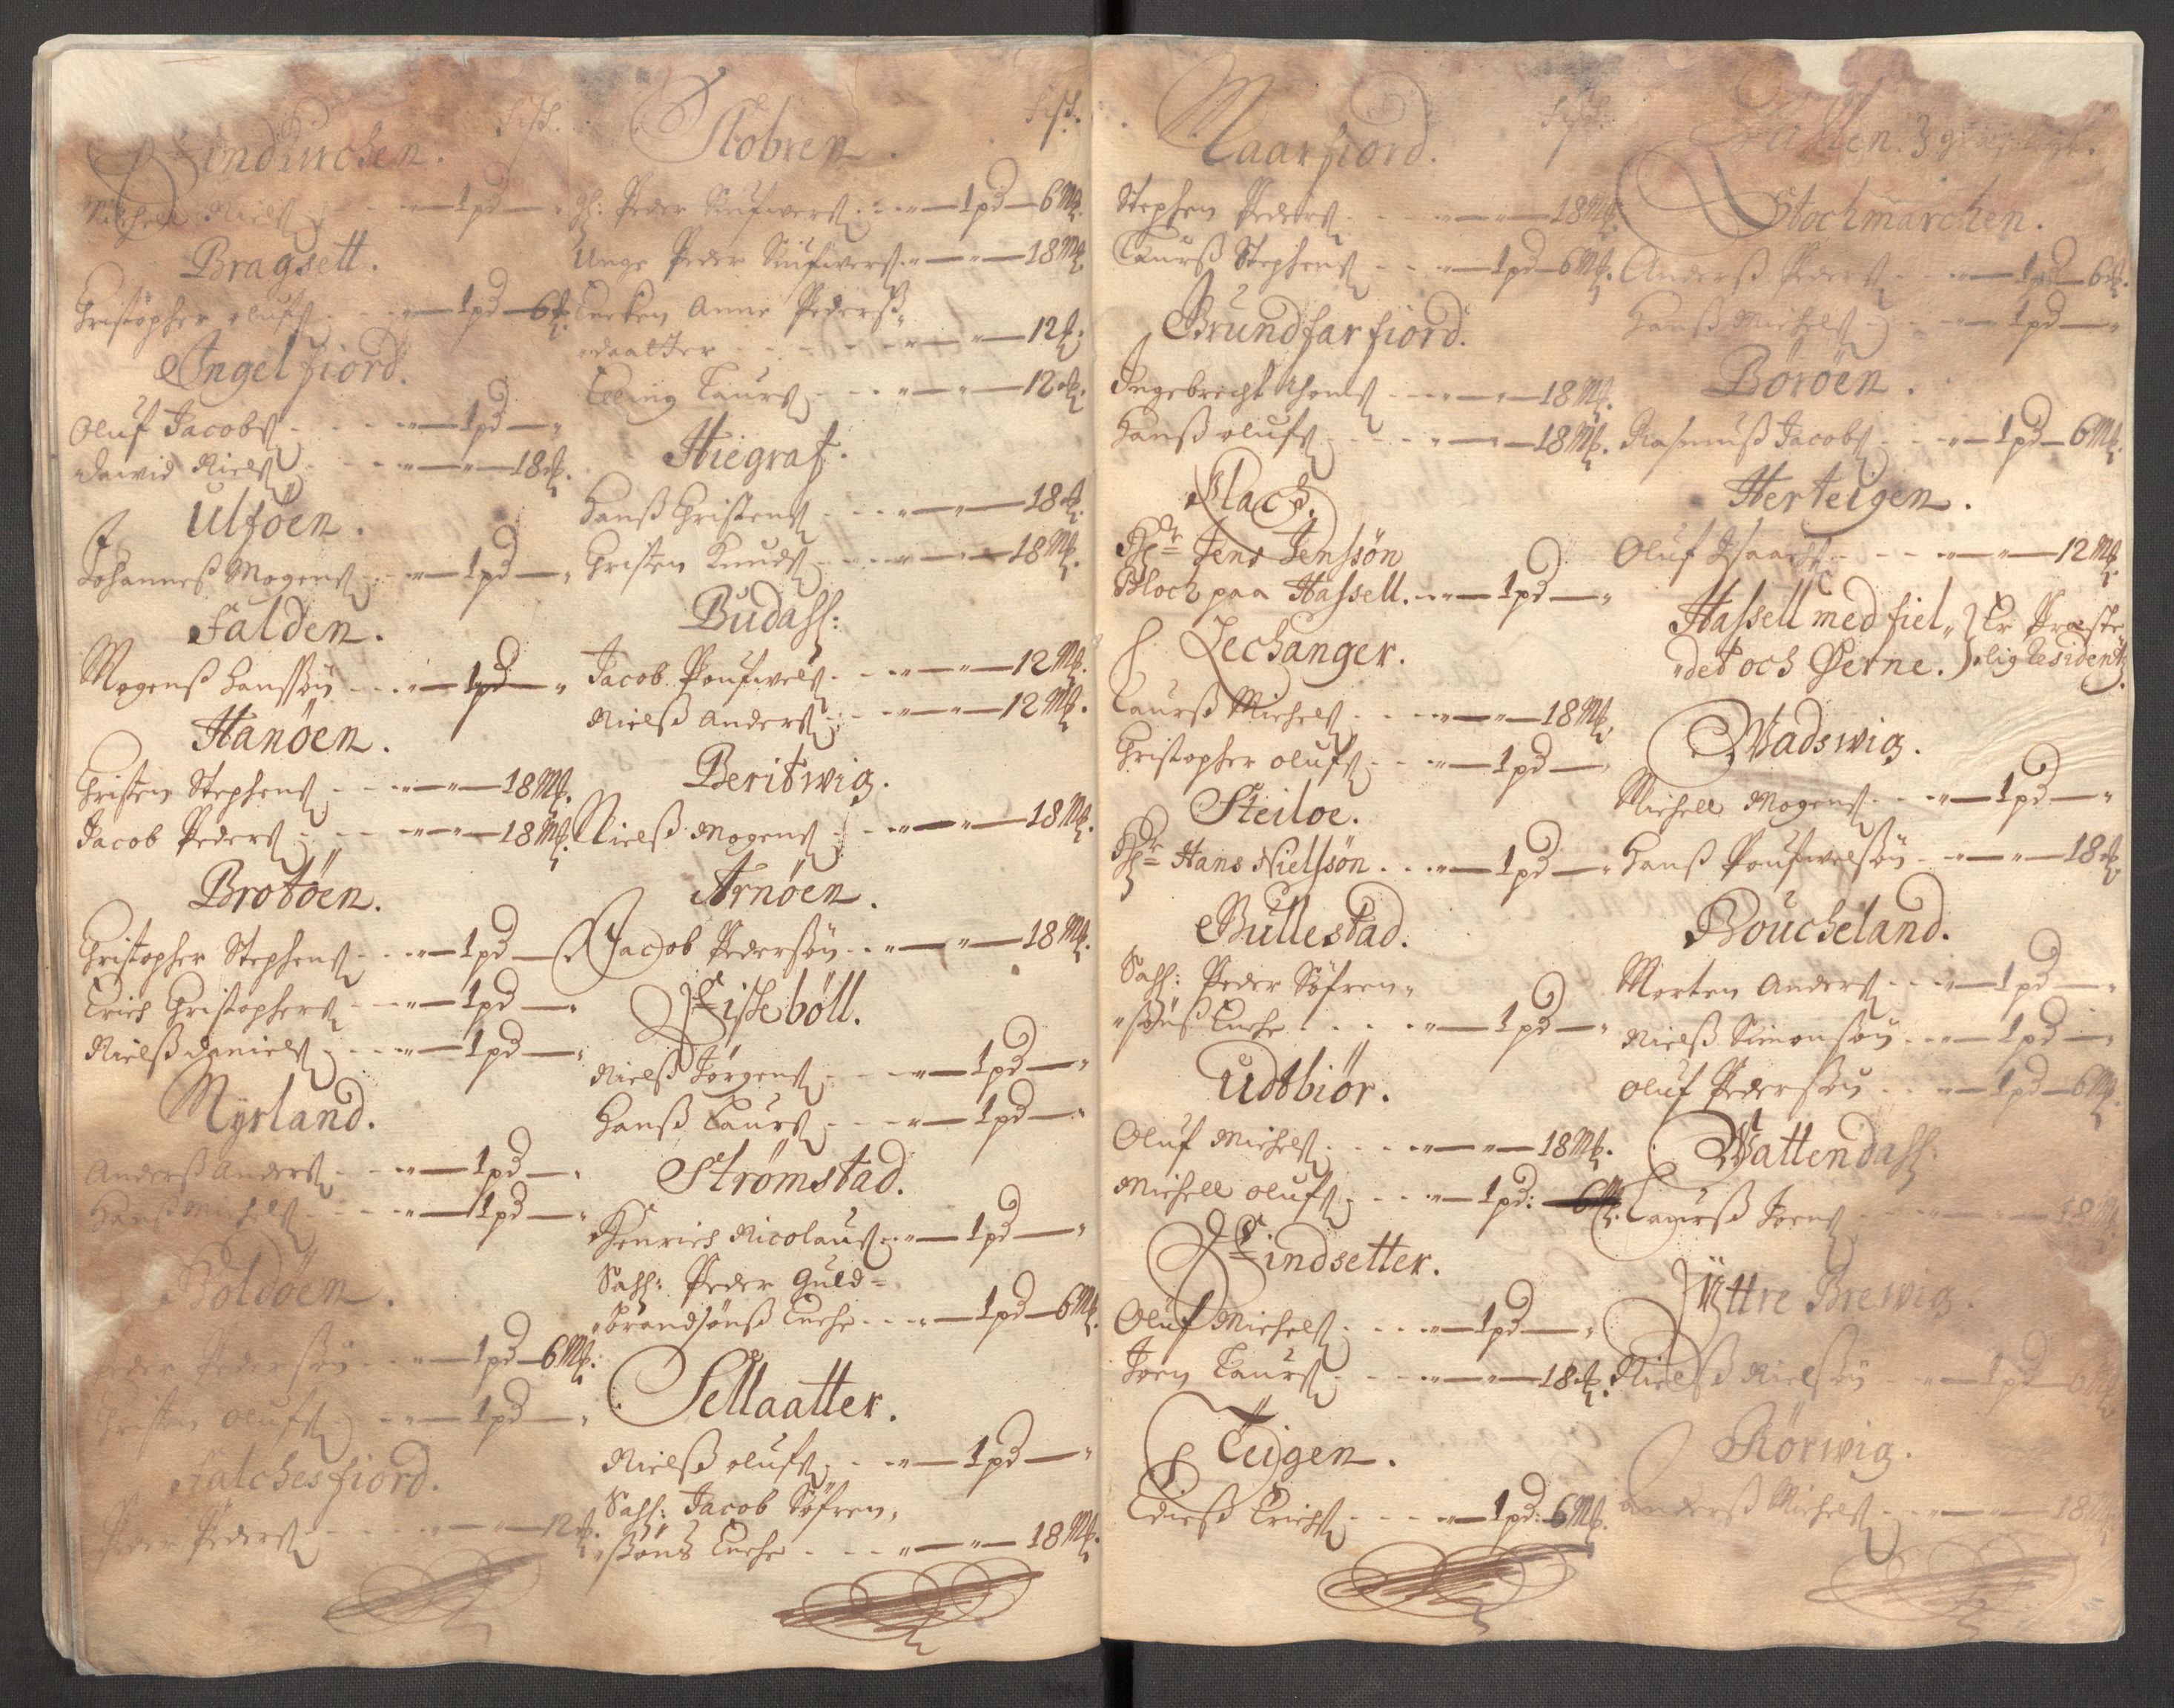 Fisch.
Findurchen.
Michell Niels 1 pd
Bragsett.
Christopher olufs 1 pd 6
Angelfiord.
Oluf Jacobs 1 pd
David Niels 18
Ulföen.
Johanneß Mogens 1 pd
Falden.
Mogenß Hanssön 1 pd
Hanöen.
Christen Stephens 18 Mk.
Jacob Peders 18 Mk.
Brotöen.
Christopher Stephens 1 pd
Erich Christophers 1 pd
Nielß Daniels 1 pd
Myrland.
Anderß Anders 1 pd
Hanß Michels 1 pd
Boldöen.
Peder Pederssön 1 pd 6 Mk.
Christen Olufs 1 pd
Falchesfiord.
Peder Peders 12
Fisch.
Stobren.
Peder Siufwers 1 pd 6 Mk.
Unge Peder Siufwers 18 Mk.
Encken Anne Pederß
daatter 12
Elling Laurs 12
Hiegraf.
Hanß Christens 18
Christen Knuds 18 Mk.
Budahl:
Jacob Poufwels 12 Mk.
Nielß Anders 12 Mk.
Beritwig.
Nielß Mogens 18 Mk.
Arnöen.
Jacob Pedersön 18 Mk.
Fiskeböll.
Nielß Jörgens 1 pd
Hanß Laurs 1 pd
Strømstad.
Henrich Nicolaus 1 pd
Sahl: Peder Guld=
brandsönß Encke 1 pd 6 Mk.
Sellaatter.
Nielß olufs 1 pd
Sahl: Jacob Söfren
sönß Encke 18 Mk.
Fisch.
Maarfiord.
Stephen Peders 18 Mk.
Laurß Stephens 1 pd 6 Mk.
Grundfarfiord.
Ingebrecht Thoms 18 Mk.
Hanß olufs 18 Mk.
Slach.
Hr Jens Jenssön
Bloch paa Hassell. 1 pd
Lechanger.
Laurß Michels 18 Mk.
Christopher olufs 1 pd
Steiloe.
Hr Hans Nielssön 1 pd
Gullestad.
Sahl: Peder Söfren
sönß Encke 1 pd
Udtbiör.
Oluf Michels 18 Mk.
Michell olufs 1 pd:
Findsetter.
Oluf Michels 1 pd
Joen Laurs 18
Teigen.
Edisß Erichs 1 pd: 6 Mk.
Stochmarchen.
Anderß Peders 1 pd 6
Hanß Michels 1 pd
Böröen.
Rasmuß Jacobs 1 pd 6 Mk.
Herteigen.
Oluf Isaachs 12 Mk.
Hassell med fiel Er Præste
det och Øerne. lig Residentz.
Wadswig.
Michell Mogens 1 pd
Hanß Poufwelsön 18
Boucheland.
Morten Anders 1 pd
Nielß Simonsön 1 pd
Oluf Pedersön 1 pd 6 Mk.
Wattendahl:
Laurß Joens 18 Mk.
Ÿttre Brewig.
Nielß Nielsön 1 pd 6 Mk.
Rörwig.
Anderß Michels 18 Mk.